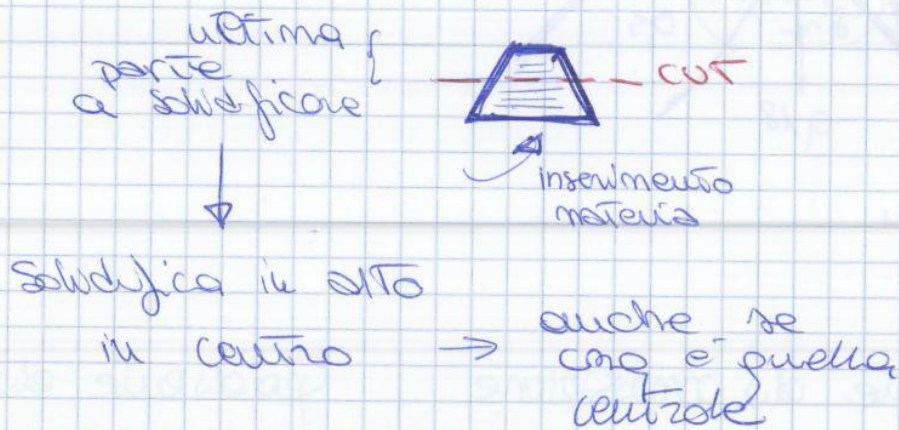 ultima
parte
a solidificare
CUT
inserimento
materia
Solidifica in alto
in centro → anche se
è quella
centrale